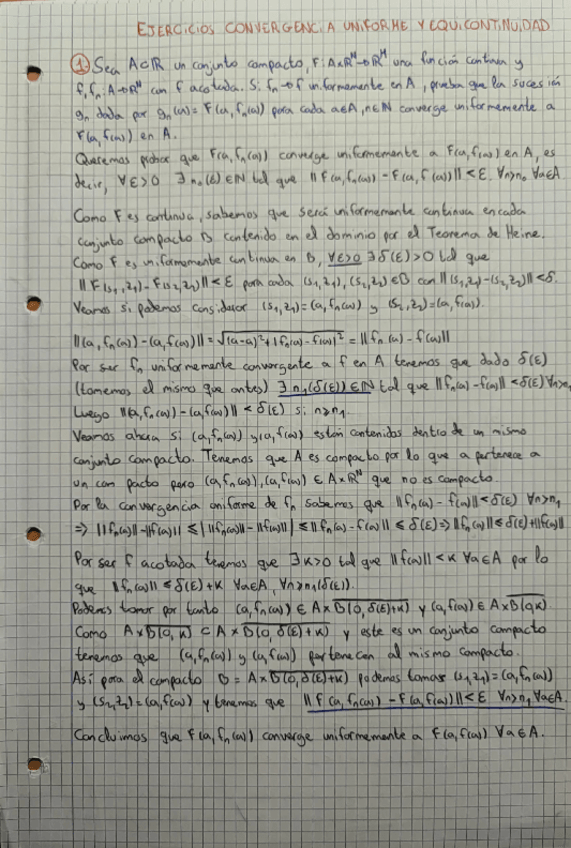 EJERCICIOS CONVERGENCIA UNIFORME Y EQUICONTINUIDAD
① Sea A⊂ℝ un conjunto compacto, F: A×ℝᴺ→ℝᴹ una función continua y
f, fₙ: A→ℝᴺ con f acotada. Si fₙ→f uniformemente en A, prueba que la sucesión
gₙ dada por gₙ(a)= F(a, fₙ(a)) para cada a∈A, n∈ℕ converge uniformemente a
F(a, f(a)) en A.
Queremos probar que F(a, fₙ(a)) converge uniformemente a F(a, f(a)) en A, es
decir, ∀ε>0 ∃n₀(ε)∈ℕ tal que ||F(a, fₙ(a)) - F(a, f(a))|| < ε ∀n>n₀ ∀a∈A
Como F es continua, sabemos que será uniformemente continua en cada
conjunto compacto B contenido en el dominio por el Teorema de Heine.
Como F es uniformemente continua en B, ∀ε>0 ∃δ(ε)>0 tal que
||F(s₁,z₁) - F(s₂,z₂)|| < ε para cada (s₁,z₁), (s₂,z₂)∈B con ||(s₁,z₁)-(s₂,z₂)|| < δ.
Veamos si podemos considerar (s₁,z₁)=(a, fₙ(a)) y (s₂,z₂)=(a, f(a)).
||(a, fₙ(a)) - (a, f(a))|| = √(a-a)²+|fₙ(a)-f(a)|² = ||fₙ(a) - f(a)||
Por ser fₙ uniformemente convergente a f en A tenemos que dado δ(ε)
(tomemos el mismo que antes) ∃n₁(δ(ε))∈ℕ tal que ||fₙ(a)-f(a)|| < δ(ε) ∀n>n₁
Luego ||(a, fₙ(a)) - (a, f(a))|| < δ(ε) si n>n₁.
Veamos ahora si (a, fₙ(a)) y (a, f(a)) están contenidas dentro de un mismo
conjunto compacto. Tenemos que A es compacto por lo que a pertenece a
un compacto pero (a, fₙ(a)), (a, f(a)) ∈ A×ℝᴺ que no es compacto.
Por la convergencia uniforme de fₙ sabemos que ||fₙ(a) - f(a)|| < δ(ε) ∀n>n₁
⇒ ||fₙ(a)|| - ||f(a)|| ≤ | ||fₙ(a)|| - ||f(a)|| | ≤ ||fₙ(a) - f(a)|| ≤ δ(ε) ⇒ ||fₙ(a)|| ≤ δ(ε)+||f(a)||
Por ser f acotada tenemos que ∃K>0 tal que ||f(a)|| < K ∀a∈A por lo
que ||fₙ(a)|| ≤ δ(ε)+K ∀a∈A, ∀n>n₁(δ(ε)).
Podemos tomar por tanto (a, fₙ(a)) ∈ A×B̅(0, δ(ε)+K) y (a, f(a)) ∈ A×B̅(0,K)
Como A×B̅(0,K) ⊂ A×B̅(0, δ(ε)+K) y este es un conjunto compacto
tenemos que (a, fₙ(a)) y (a, f(a)) pertenecen al mismo compacto.
Así para el compacto B = A×B̅(0, δ(ε)+K) podemos tomar (s₁,z₁)=(a, fₙ(a))
y (s₂,z₂)=(a, f(a)) y tenemos que ||F(a, fₙ(a)) - F(a, f(a))|| < ε ∀n>n₁ ∀a∈A.
Concluimos que F(a, fₙ(a)) converge uniformemente a F(a, f(a)) ∀a∈A.